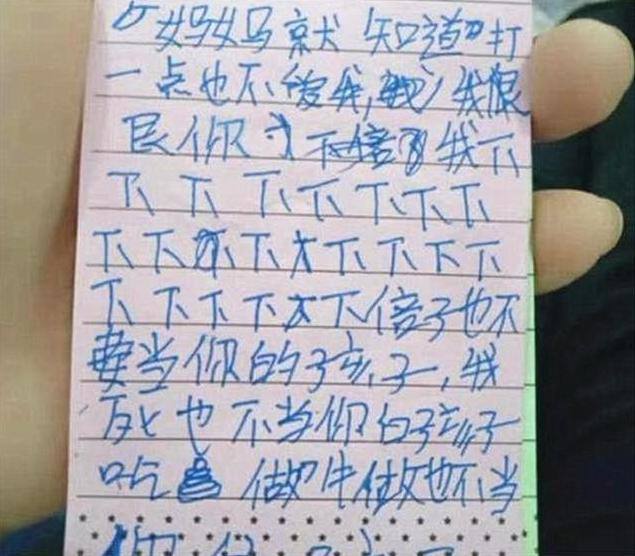 妈妈就知道”打
一点也不爱我,我恨
你下倍了我下
下下下下下下下
下下下下下下下下
下下下下下下倍子也不
要当你的孩子,我
死也不当你的孩子
吃 做牛做也不当